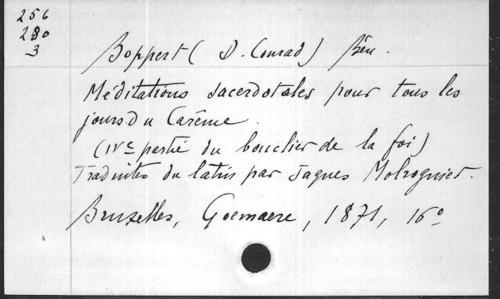 256
280
3
Boppert (D. Conrad) Bén.
Méditations sacerdotales pour tous les
jours du Carême.
(1re partie du bouclier de la foi)
Traduites du latin par Jaques Molrognier.
Bruxelles, Goemaere, 1871, 16o